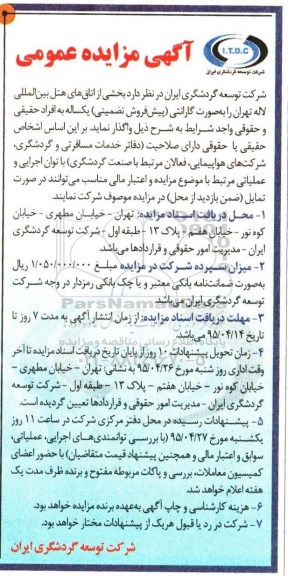 I.T.D.C
شرکت توسعه گردشگری ایران
آگهی مزایده عمومی
شرکت توسعه گردشگری ایران در نظر دارد بخشی از اتاق‌های هتل بین‌المللی
لاله تهران را به‌صورت گارانتی (پیش‌فروش تضمینی) یکساله به افراد حقیقی
و حقوقی واجد شرایط به شرح ذیل واگذار نماید. بر این اساس اشخاص
حقیقی یا حقوقی دارای صلاحیت (دفاتر خدمات مسافرتی و گردشگری،
شرکت‌های هواپیمایی، فعالان مرتبط با صنعت گردشگری) با توان اجرایی و
عملیاتی مرتبط با موضوع مزایده و اعتبار مالی مناسب می‌توانند در صورت
تمایل (ضمن بازدید از محل) در مزایده موصوف شرکت نمایند.
۱- محل دریافت اسناد مزایده: تهران - خیابان مطهری - خیابان
کوه نور - خیابان هفتم - پلاک ۱۳ - طبقه اول - شرکت توسعه گردشگری
ایران - مدیریت امور حقوقی و قراردادها می‌باشد.
۲- میزان سپرده شرکت در مزایده مبلغ ۱/۰۵۰/۰۰۰/۰۰۰ ریال
به‌صورت ضمانت‌نامه بانکی معتبر و یا چک بانکی رمزدار در وجه شرکت
توسعه گردشگری ایران می‌باشد.
۳- مهلت دریافت اسناد مزایده: از زمان انتشار آگهی به مدت ۷ روز تا
تاریخ ۹۵/۰۴/۱۴ می‌باشد.
۴- زمان تحویل پیشنهادات ۱۰ روز از پایان تاریخ دریافت اسناد مزایده تا آخر
وقت اداری روز شنبه مورخ ۹۵/۰۴/۲۶ به نشانی: تهران - خیابان مطهری -
خیابان کوه نور - خیابان هفتم - پلاک ۱۳ - طبقه اول - شرکت توسعه
گردشگری ایران - مدیریت امور حقوقی و قراردادها تعیین گردیده است.
۵- پیشنهادات رسیده در محل دفتر مرکزی شرکت در ساعت ۱۱ روز
یکشنبه مورخ ۹۵/۰۴/۲۷ (با بررسی توانمندی‌های اجرایی، عملیاتی،
سوابق و اعتبار مالی و همچنین پیشنهاد قیمت متقاضیان) با حضور اعضای
کمیسیون معاملات، بررسی و پاکات مربوطه مفتوح و برنده ظرف مدت یک
هفته اعلام خواهد شد.
۶- هزینه کارشناسی و چاپ آگهی به‌عهده برنده مزایده خواهد بود.
۷- شرکت در رد یا قبول هریک از پیشنهادات مختار خواهد بود.
شرکت توسعه گردشگری ایران